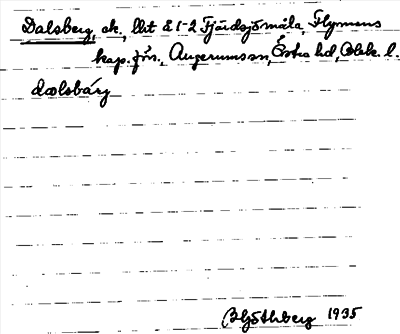 Dalsberg, ək., lht E 1-2 Fjärdsjömåla, Flymens
kap. förs., Augerums sn, Östra hd, Blek. l.
dalsbárg
B Hjöthberg 1935